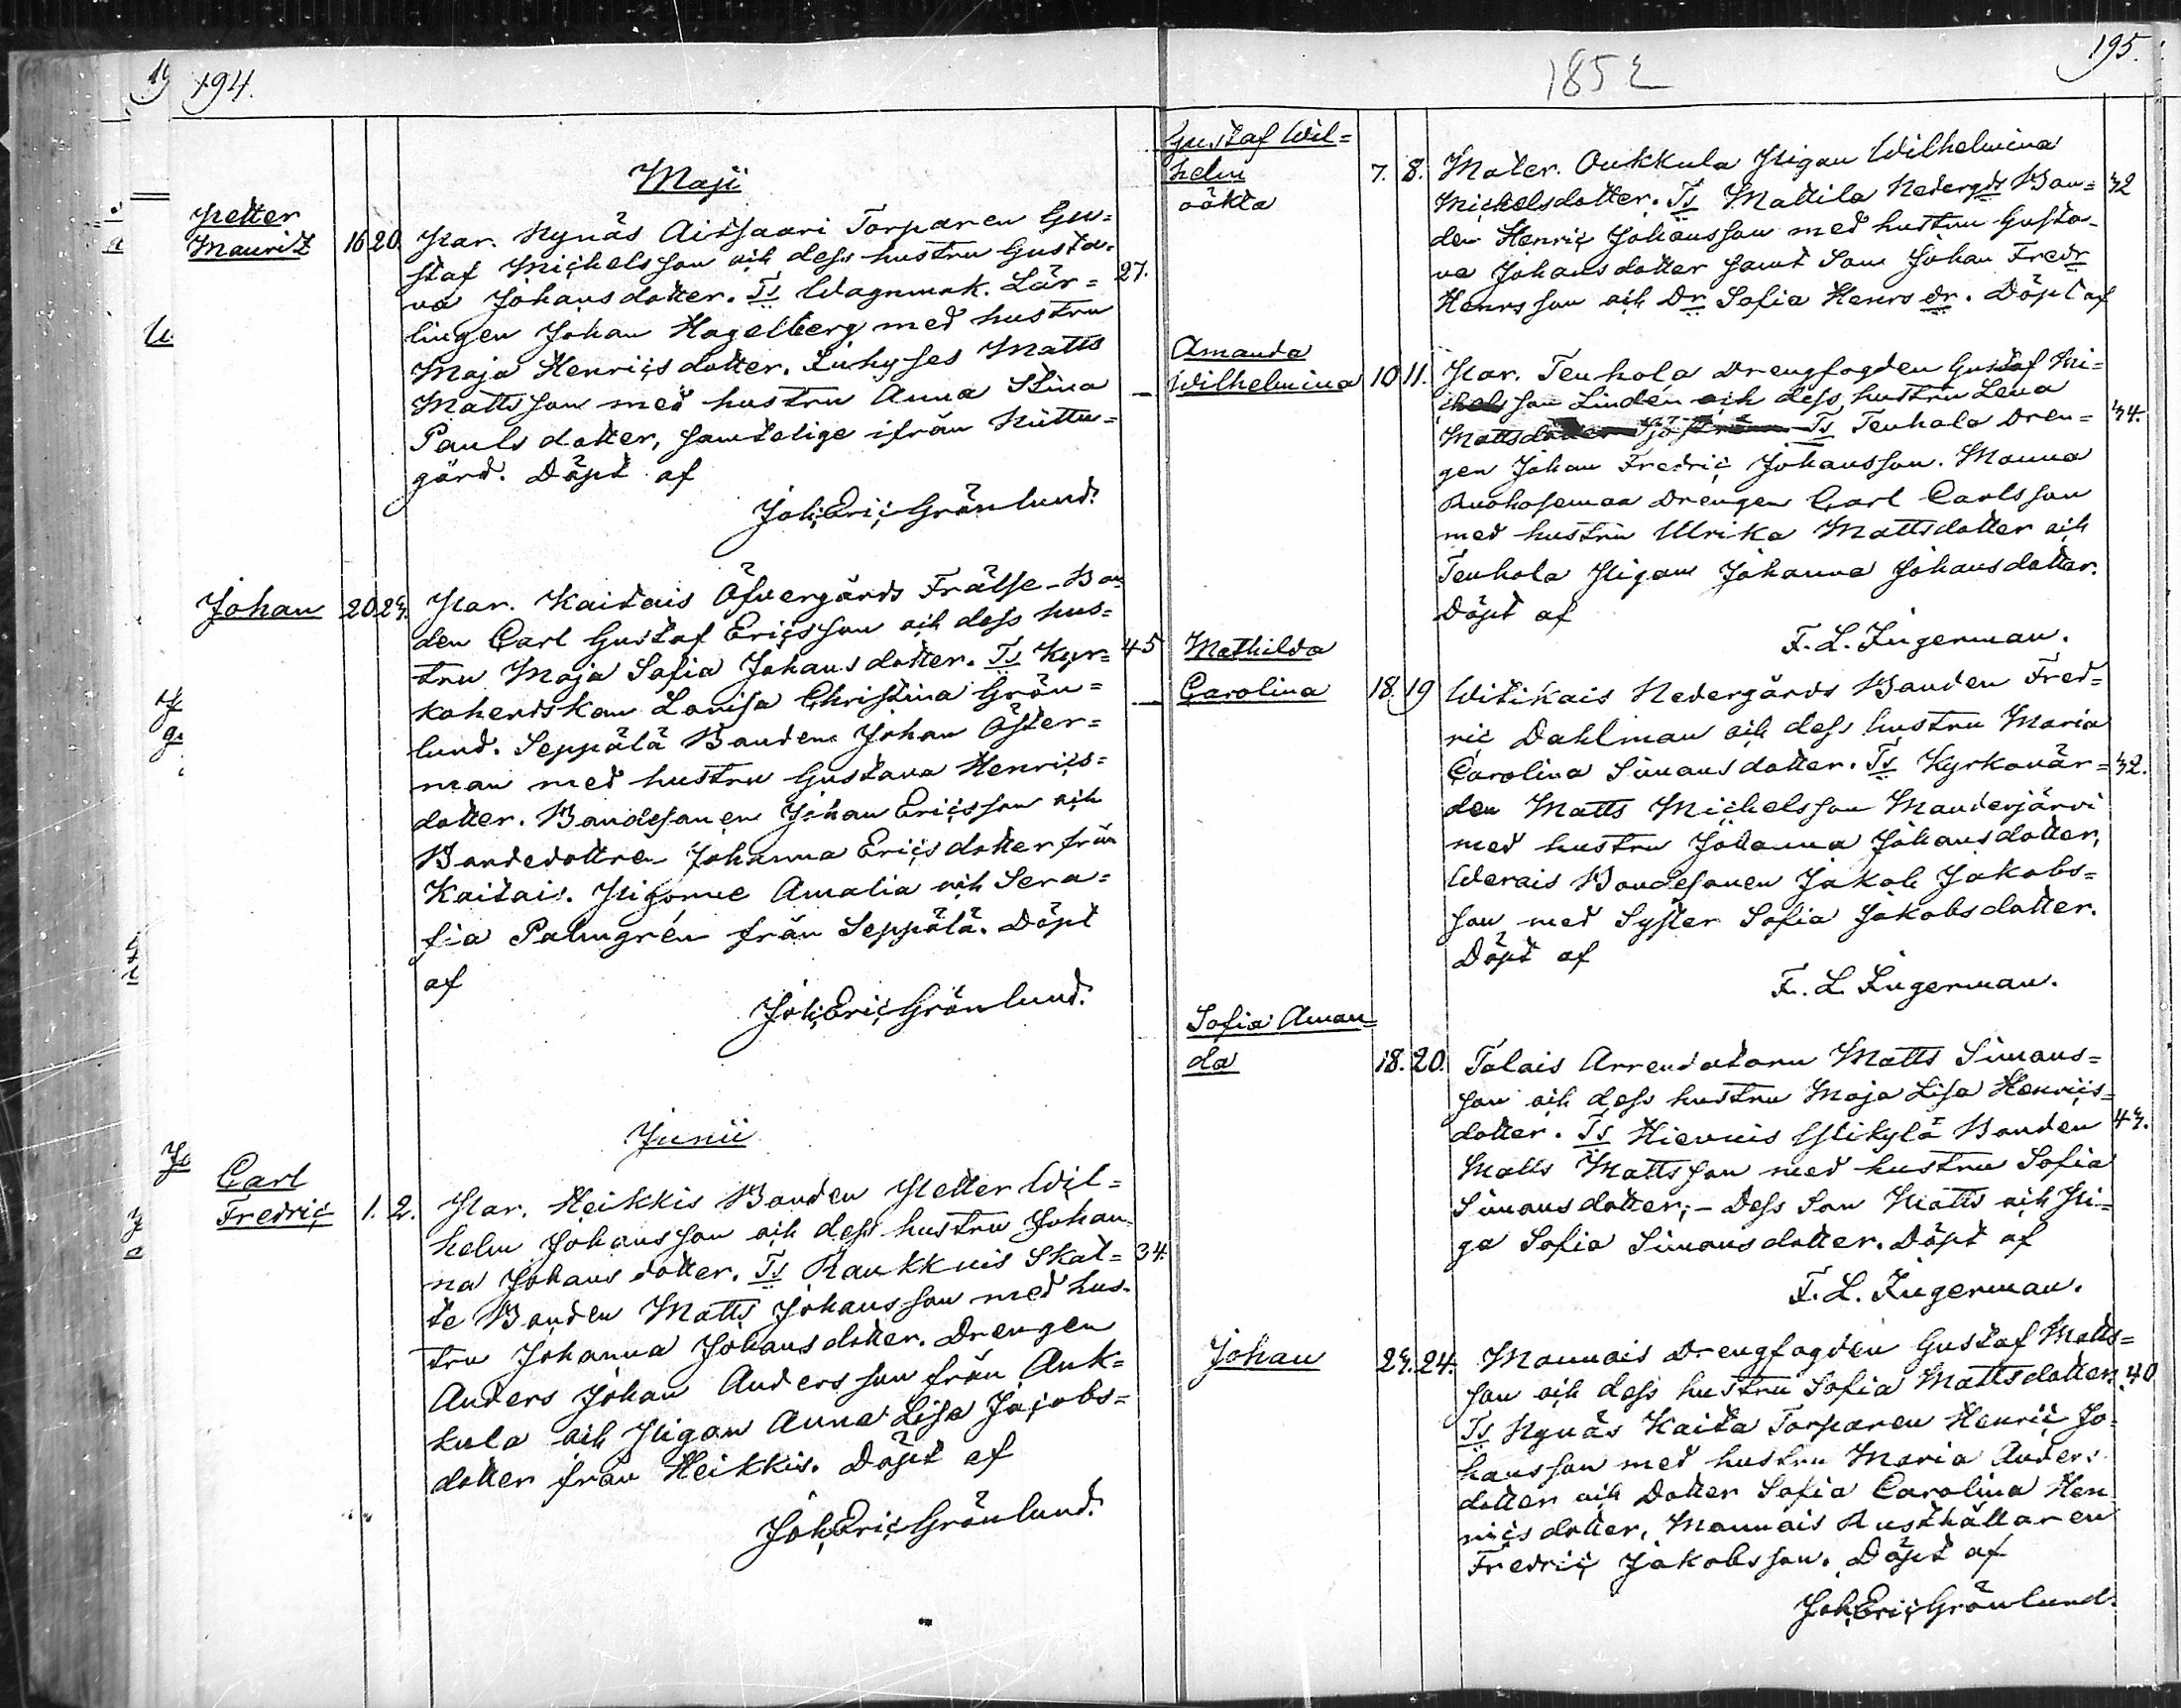 194.
Maji
Petter
Mauritz 16 20. Par. Nynäs Aitsaari Torparen Gu=
staf Michelsson och dess hustru Gusta=
va Johansdotter. Ts Wagnmak. Lär= 27.
lingen Johan Hagelberg med hustru
Maja Henricsdotter. Inhyses Matts
Mattsson med hustru Anna Stina
Paulsdotter, samtelige ifrån
gård. Döpt af
Joh. Eric Grönlund.
Johan 20 23. Par. Kaitais Öfvergårds Frälse-Bon
den Carl Gustaf Ericsson och dess hus=
tru Maja Sofia Johansdotter. Ts Kyr= 45
koherdskan Lovisa Christina Grön=
lund. Seppälä Bonden Johan Öster=
man med hustru Gustava Henrics=
dotter. Bondesonen Johan Ericsson och
Bondedottren Johanna Ericsdotter från
Kaitais. Pigorne Amalia och Sera=
fia Palmgrén från Seppälä. Döpt
af
Joh. Eric Grönlund.
Junii
Carl
Fredric 1. 2. Par. Heikkis Bonden Petter Wil=
helm Johansson och dess hustru Johan=
na Johansdotter. Ts Raukkuis Skat= 34.
te Bonden Matts Johansson med hus=
tru Johanna Johansdotter. Drengen
Anders Johan Andersson från Auk=
kula och Pigan Anna Lisa Jacobs=
dotter från Heikkis. Döpt af
Joh. Eric Grönlund.
195.
1852
Gustaf Wil=
helm 7. 8. Mater. Oukkula Pigan Wilhelmina
oäkta Michelsdotter. Ts Mattila Nedergds Bon= 32
den Henric Johansson med hustru Gusta=
va Johansdotter samt Son Johan Fredr
Henrsson och Dr Sofia Henrsdr. Döpt af
Amanda
Wilhelmina 10 11. Par. Tenhola Drengfogden Gustaf Mi=
chelsson Linden och dess hustru Lena
Mattsdotter Ts Tenhola Dren= 34.
gen Johan Fredric Johansson. Manna
Ruohosemaa Drengen Carl Carlsson
med hustru Ulrika Mattsdotter och
Tenhola Pigan Johanna Johansdotter.
Döpt af
F. L. Ingerman.
Mathilda
Carolina 18. 19 Witikais Nedergårds Bonden Fred=
ric Dahlman och dess hustru Maria
Carolina Simonsdotter. Ts Kyrkovär= 32.
den Matts Michelsson Manderjärvi
med hustru Johanna Johansdotter,
Werais Bondesonen Jakob Jakobs=
son med Syster Sofia Jakobsdotter.
Döpt af
F. L. Ingerman.
Sofia Aman=
da 18. 20. Talais Arrendatorn Matts Simons=
son och dess hustru Maja Lisa Henrics=
dotter. Ts Hiervis Ylikylä Bonden 43.
Matts Mattsson med hustru Sofia
Simonsdotter;- Dess Son Matts och Pi=
ga Sofia Simonsdotter. Döpt af
F. L. Ingerman.
Johan 23. 24. Mannais Drengfogden Gustaf Matts=
son och dess hustru Sofia Mattsdotter. 40
Ts Nynäs Kaita Torparen Henric Jo=
hansson med hustru Maria Anders
dotter och Dotter Sofia Carolina Hen
ricsdotter, Mannais Rusthållaren
Fredric Jakobsson. Döpt af
Joh. Eric Grönlund.